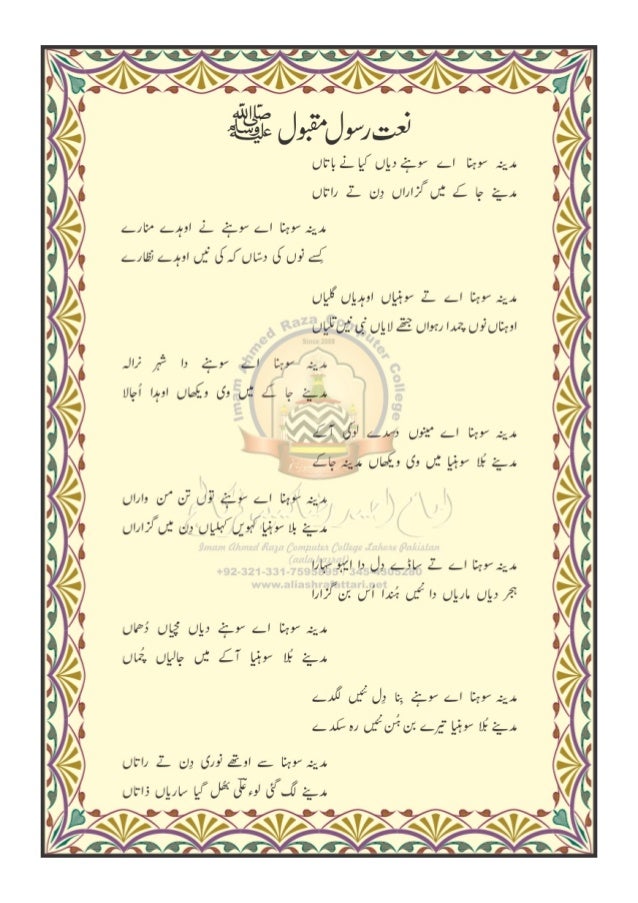 نعت رسول مقبول ﷺ
مدینہ سوہنا اے سوہنے دیاں کیا نے باتاں
مدینے جا کے میں گزاراں دِن تے راتاں
مدینہ سوہنا اے سوہنے نے اوہدے منارے
کِسے نوں کی دسّاں کہ کی نیں اوہدے نظارے
مدینہ سوہنا اے تے سوہنیاں اوہدیاں گلیاں
اوہناں نوں چمدا رہواں جتھے لایاں نبی نیں تلیاں
مدینہ سوہنا اے سوہنے دا شہر نرالہ
مدینے جا کے میں وی ویکھاں اوہدا اُجالا
مدینہ سوہنا اے مینوں دسدے لوکی آکے
مدینے بُلا سوہنیا میں وی ویکھاں مدینہ جاکے
مدینہ سوہنا اے سوہنے توں تن من واراں
مدینے بلا سوہنیا کہویں کہلیاں دِن میں گزاراں
مدینہ سوہنا اے تے ساڈے دِل دا ایہو سہارا
ہجر دیاں ماریاں دا نئیں ہُندا اُس بن گزارا
مدینہ سوہنا اے سوہنے دیاں مچیاں دُھماں
مدینے بُلا سوہنیا آکے میں جالیاں چُماں
مدینہ سوہنا اے سوہنے بِنا دِل نئیں لگدے
مدینے بُلا سوہنیا تیرے بن ہُن نئیں رہ سکدے
مدینہ سوہنا سے اوتھے نوری دِن تے راتاں
مدینے لگ گئی لوء علی بُھل گیا ساریاں ذاتاں
Imam Ahmed Raza Computer College
Since 2008
Imam Ahmed Raza Computer College Lahore Pakistan
www.aliashrafattari.net